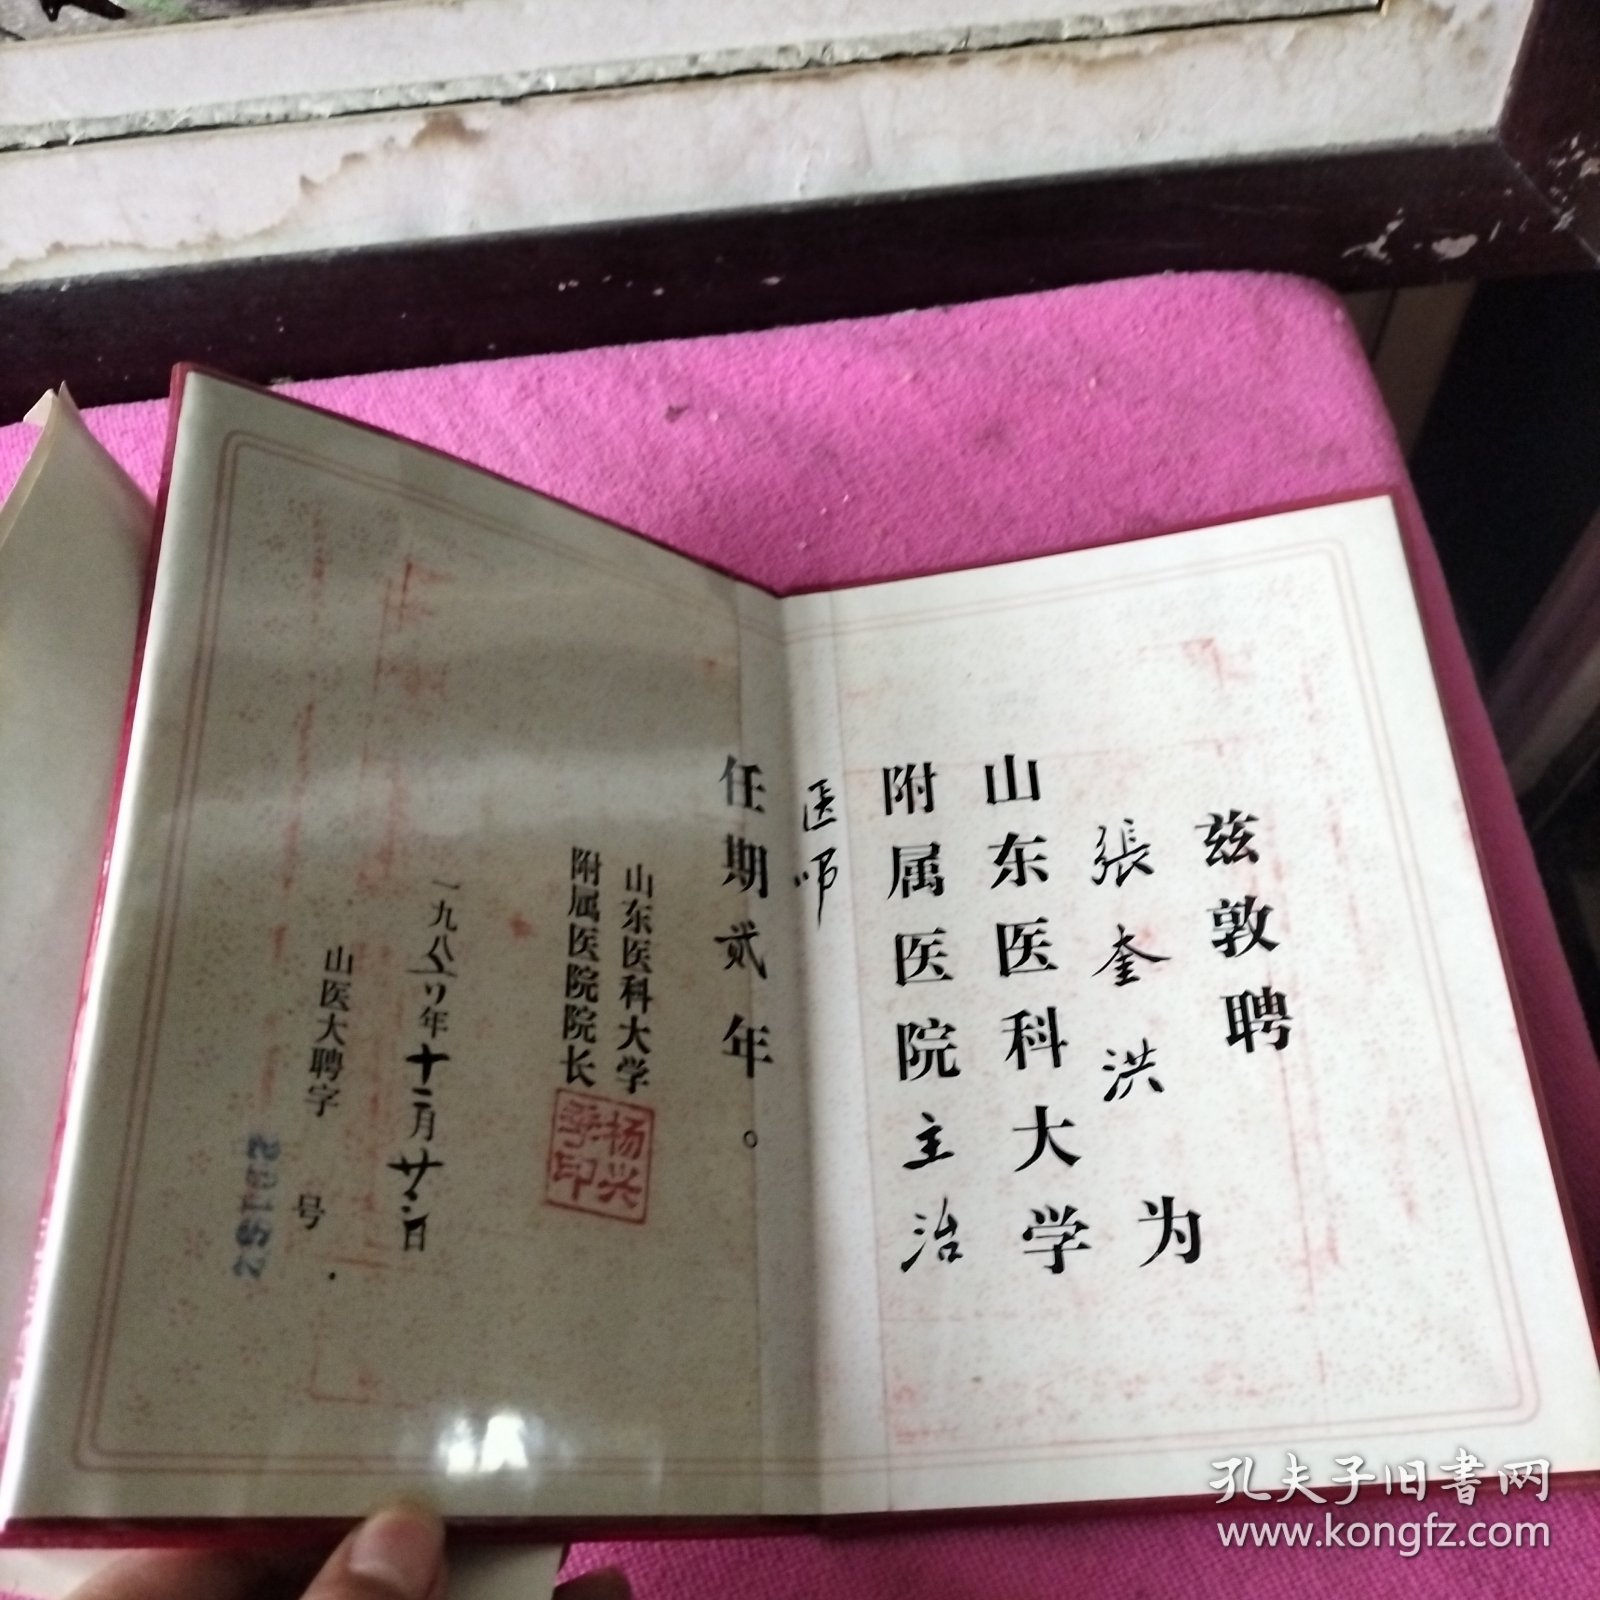 兹敦聘
張奎洪 为
山东医科大学
附属医院主治
医师
任期贰年。
山东医科大学
附属医院院长
杨兴季印
十二月廿
日
山医大聘字 号
孔夫子旧书网
www.kongfz.com